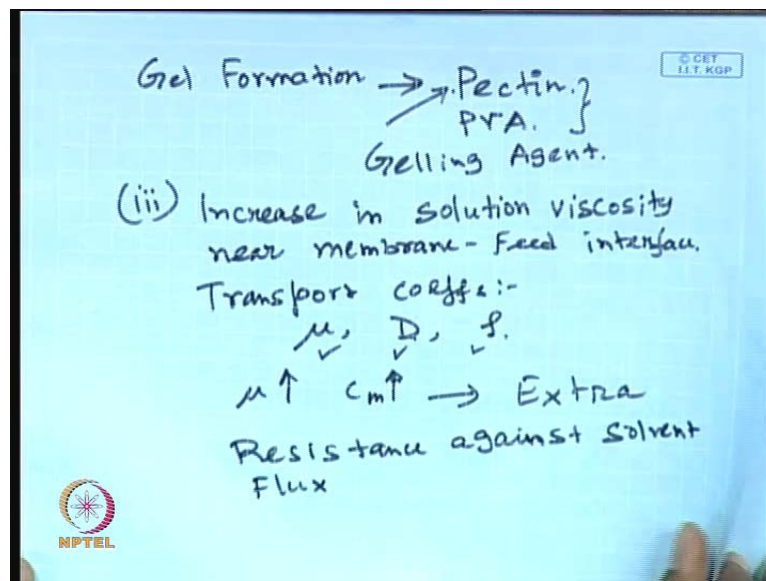 © CET
I.I.T. KGP
Gel Formation → Pectin.
PVA.
Gelling Agent.
(iii) Increase in solution viscosity
near membrane - Feed interface.
Transport coeffs :-
μ, D, ρ.
μ↑ Cm↑ → Extra
Resistance against solvent
Flux
NPTEL